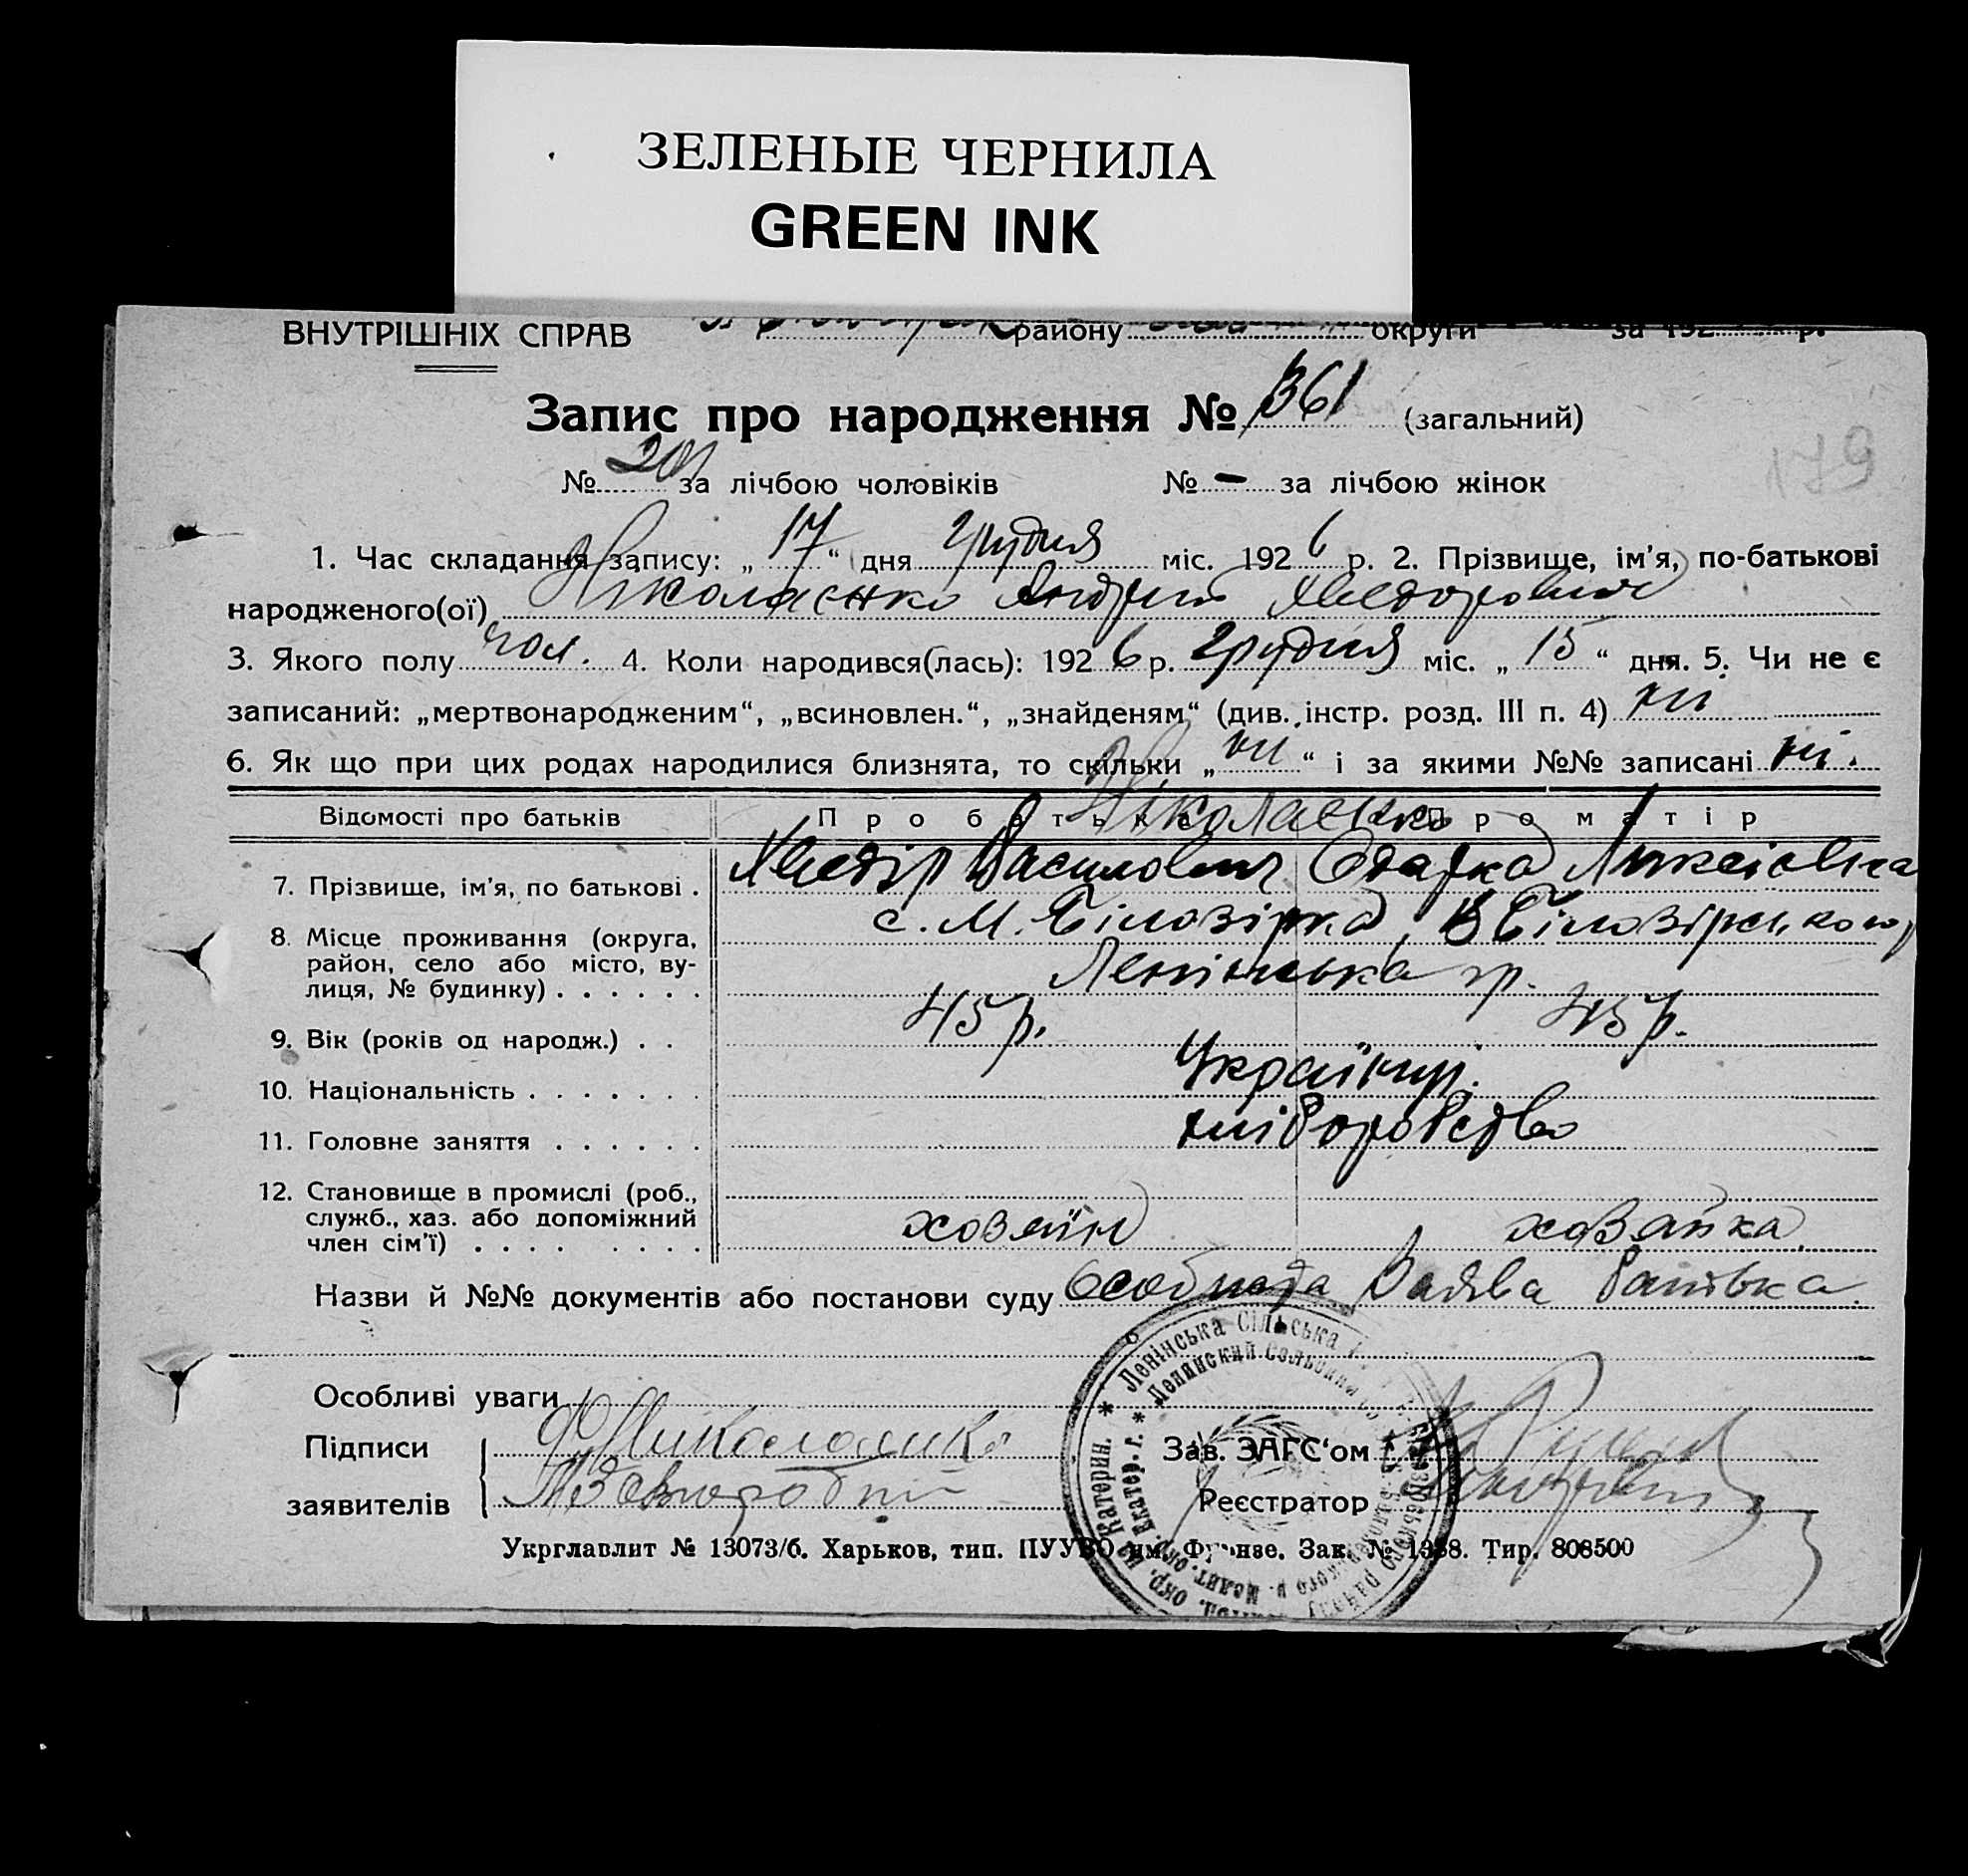 ЗЕЛЕНЫЕ ЧЕРНИЛА
GREEN INK
ВНУТРІШНІХ СПРАВ району округи за 192 р.
Запис про народження № 361 (загальний)
179
№ 201 за лічбою чоловіків № - за лічбою жінок
1. Час складання запису: „ 17 “ дня грудня міс. 1926 р. 2. Прізвище, ім'я, по-батькові
народженого(ої) Ніколаєнко Андрій Хведорович
3. Якого полу чол. 4. Коли народився(лась): 1926 р. грудня міс. „ 15 “ дня. 5. Чи не є
записаний: „мертвонародженим“, „всиновлен.“, „знайденям“ (див. інстр. розд. III п. 4) ні
6. Як що при цих родах народилися близнята, то скільки „ ні “ і за якими №№ записані ні.
Відомості про батьків Про батька Про матір
Ніколаєнко
7. Прізвище, ім'я, по батькові . Хведір Василович Одарка Олексіовна
8. Місце проживання (округа, район, село або місто, вулиця, № будинку) . . . . . . с. М. Білозірка, В Білозірськ.
Ленінська
9. Вік (років од народж.) . . 45 р. 45 р.
10. Національність . . . . . . . Українці
11. Головне заняття . . . . . . хліборобство
12. Становище в промислі (роб.,
служб., хаз. або допоміжний
член сім'ї) . . . . . . . . хозяїн хозяйка
Назви й №№ документів або постанови суду Особиста Заява батька
Особливі уваги
Підписи Ф Николаенко Зав. ЗАГС'ом
заявителів Завгородній Реєстратор
Укрглавлит № 13073/б. Харьков, тип. ПУУВО им. Фрунзе. Зак. № 1388. Тир. 808500
Ленінська Сільська
Ленинский